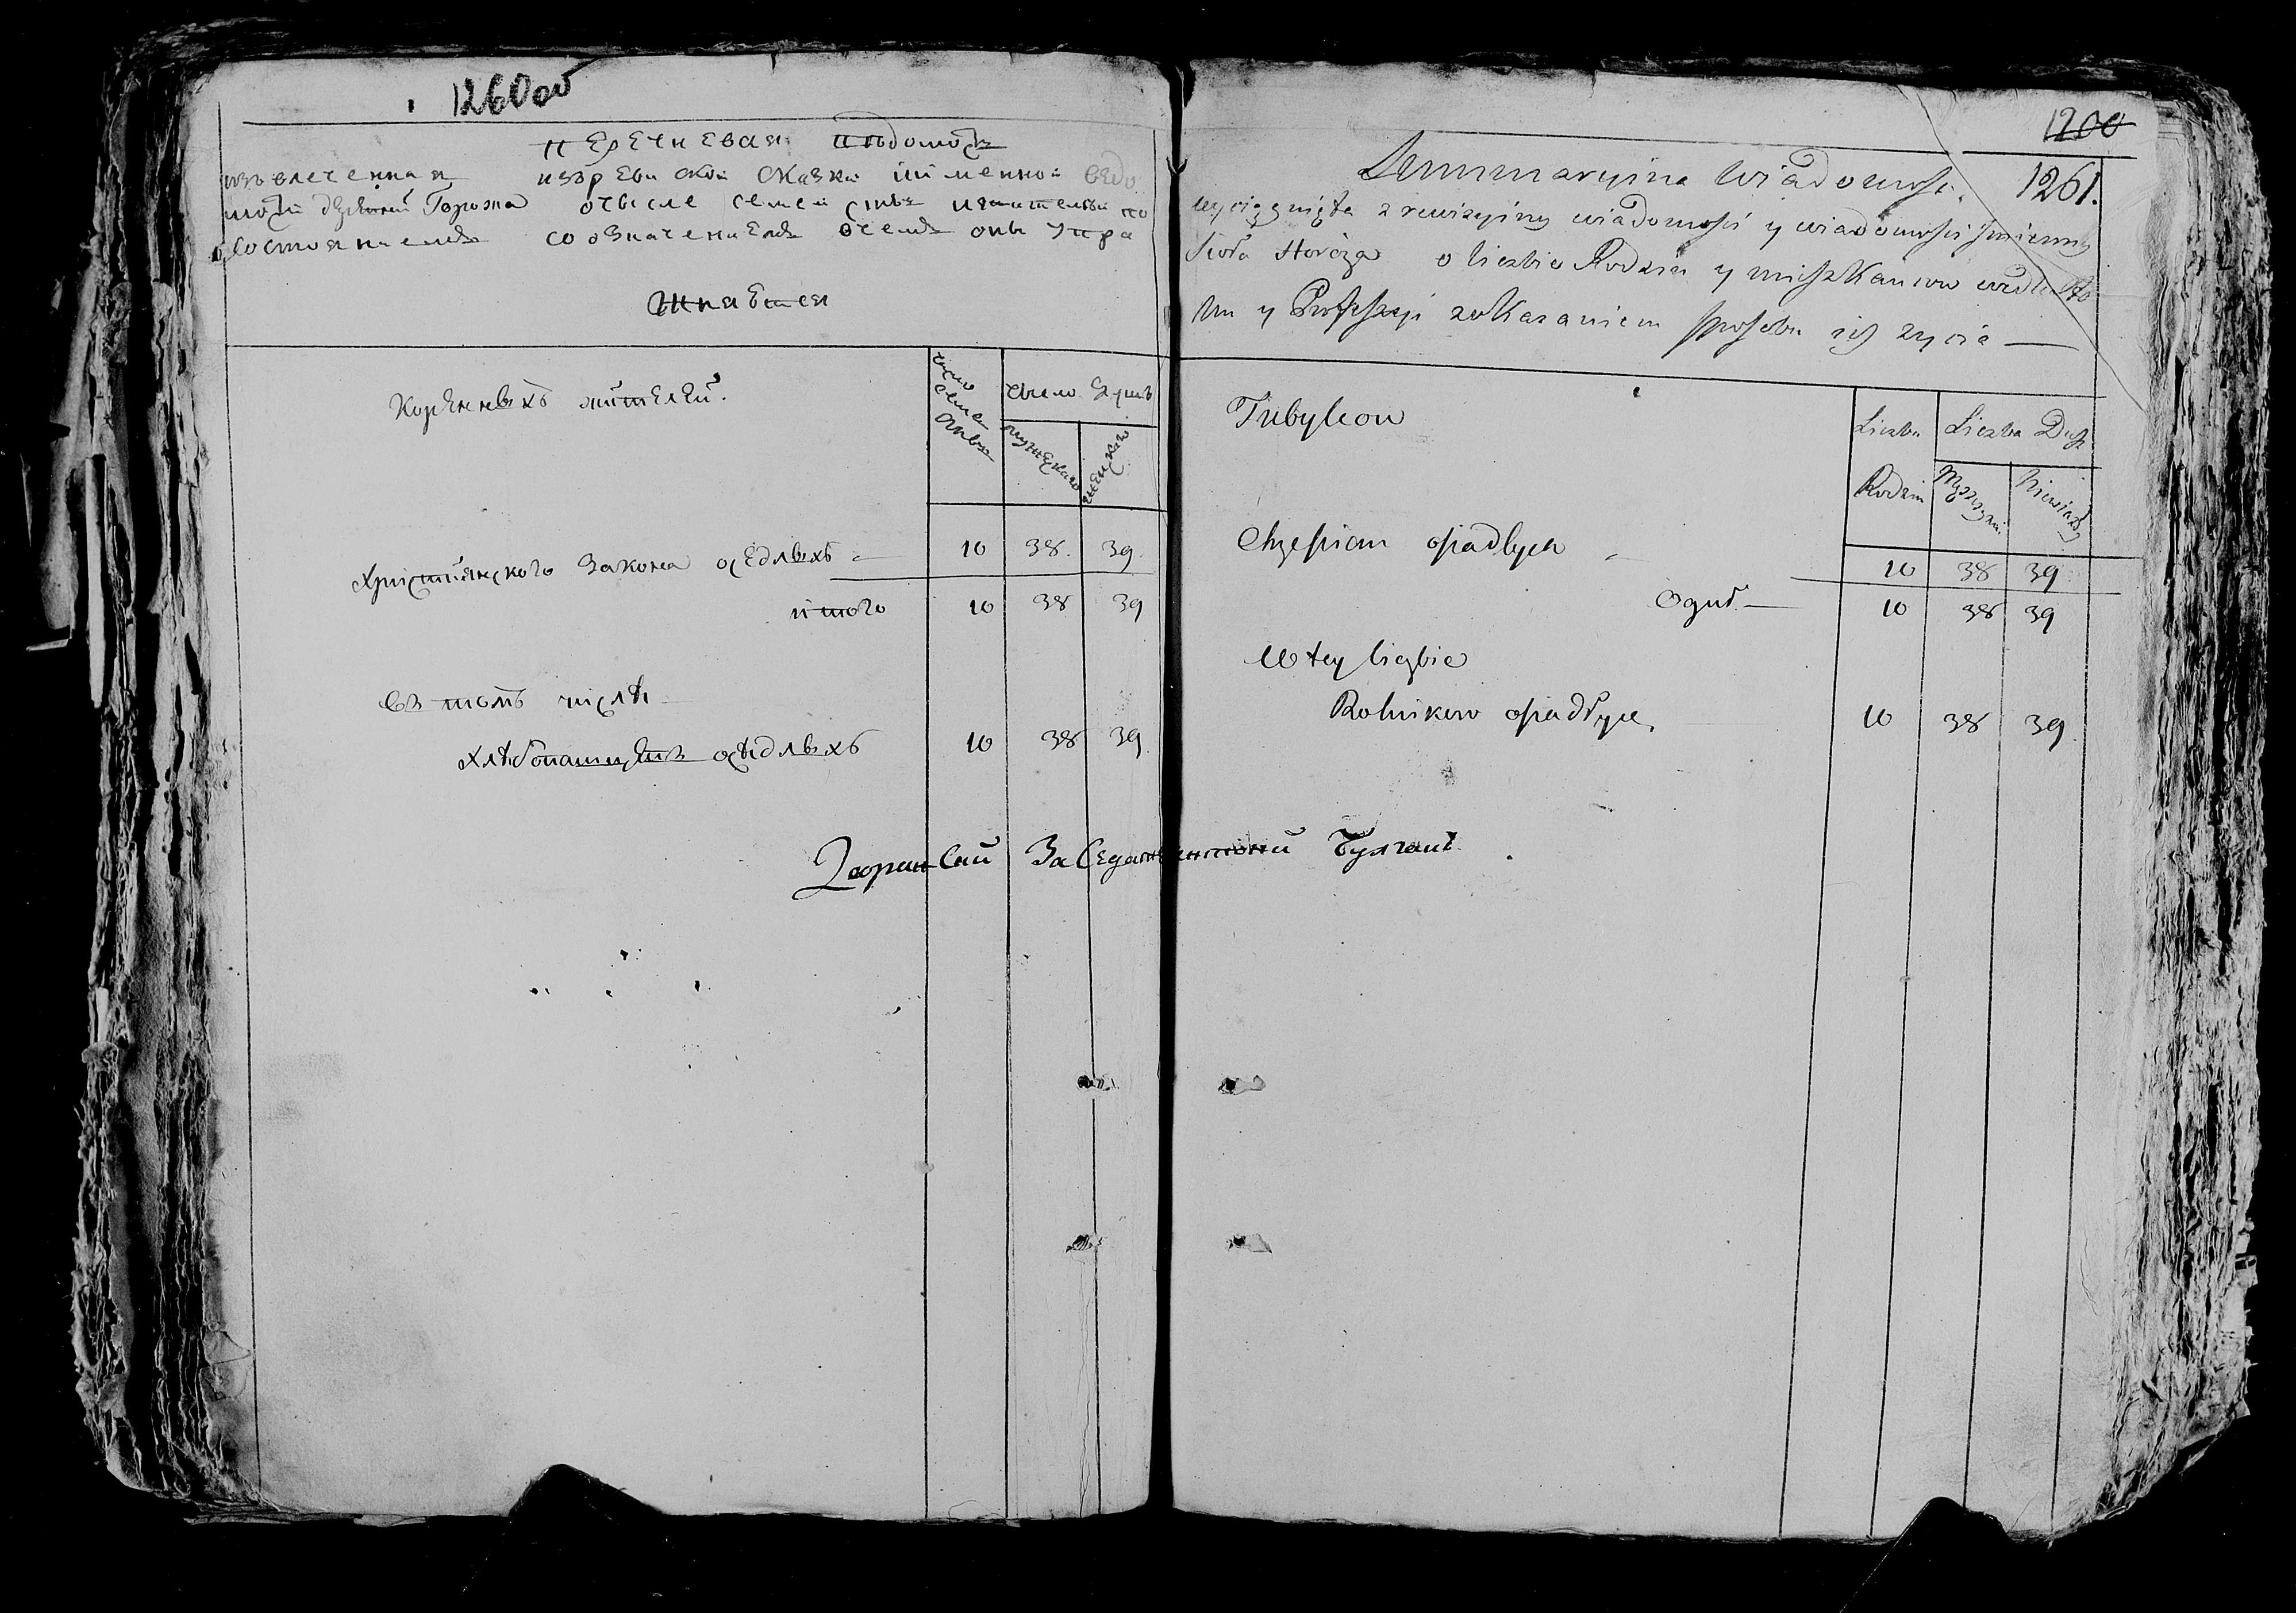 1260 об
перечневая вѣдомость
извлеченная изъ ревиской скаски именной ведо
мости деревни Горожа о числе семействъ и жителей по
состояниемъ со означениемъ о чемъ они упра
жняется
Коренныхъ жителей.
число семействъ
число душъ
мужескаго
женскаго
християнского закона оседлыхъ — 10 38. 39.
итого 10 38 39
въ томъ числѣ
хлѣбопашцевъ осѣдлыхъ 10 38 39.
Дворянский Заседатель
1200
1261.
Summaryina Wiadomość.
wyciągnięta z rewizyiny wiadomości y wiadomości Jmienny
Sioła Horoża o liczbie Rodzin y mieszkancow według sta
nu y Professyi z okazaniem sposobu ich zycia —
Tubylcow
Liczba Rodzin
Liczba Dusz
Mężczyzn
Niewiast
Chrześcian osiadłych — 10 38 39
Oguł — 10 38 39
W tey liczbie
Rolnikow osiadłych. 10 38 39.